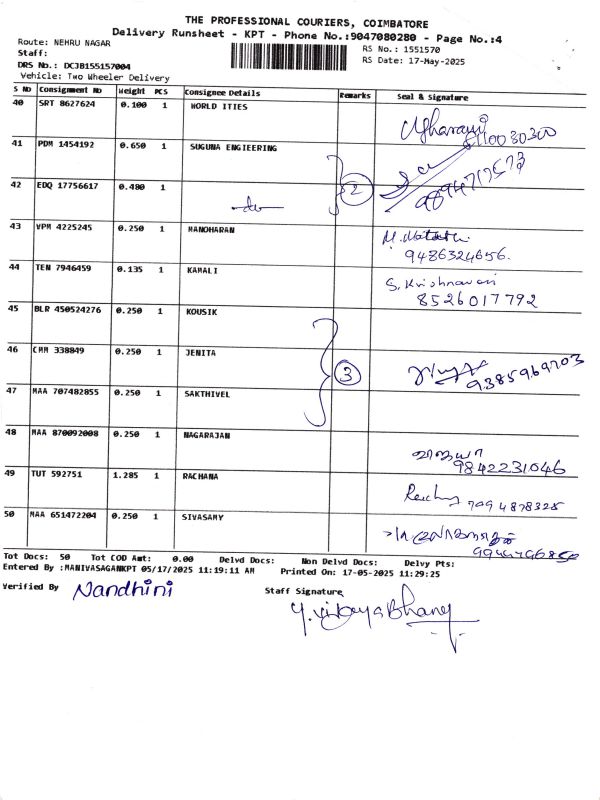 THE PROFESSIONAL COURIERS, COIMBATORE
Delivery Runsheet - KPT - Phone No.:9047080280 - Page No.:4
Route: NEHRU NAGAR
RS No.: 1551570
Staff:
RS Date: 17-May-2025
DRS No.: DCJB155157004
Vehicle: Two Wheeler Delivery
S No Consignment No Weight PCS Consignee Details Remarks Seal & Signature
40 SRT 8627624 0.100 1 WORLD ITIES
41 PDM 1454192 0.650 1 SUGUNA ENGIEERING
2
9894717573
42 EDQ 17756617 0.480 1
43 VPM 4225245 0.250 1 MANOHARAN
9486324656.
44 TEN 7946459 0.135 1 KAMALI S. Krishnaveni
8526017792
45 BLR 450524276 0.250 1 KOUSIK
46 CMM 338849 0.250 1 JENITA
3 9385969703
47 MAA 707482855 0.250 1 SAKTHIVEL
48 MAA 870092008 0.250 1 NAGARAJAN
9842231046
49 TUT 592751 1.285 1 RACHANA
7094878325
50 MAA 651472204 0.250 1 SIVASAMY
Tot Docs: 50 Tot COD Amt: 0.00 Delvd Docs: Non Delvd Docs: Delvy Pts:
Entered By :MANIVASAGANKPT 05/17/2025 11:19:11 AM Printed On: 17-05-2025 11:29:25
Verified By Nandhini Staff Signature